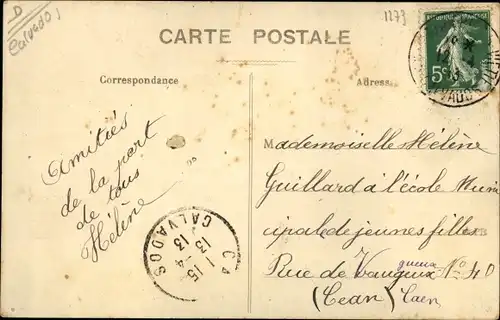 D
Calvados
1279
CARTE POSTALE
Correspondance
Adresse
5c
Amitiés
de la part
de tous
Hélène
Mademoiselle Hélène
Guillard à l'école Muni
cipale de jeunes filles
Rue de Vaugueux N° 40
gueux
(Cean) Caen
CALVADOS
15
13-4
13